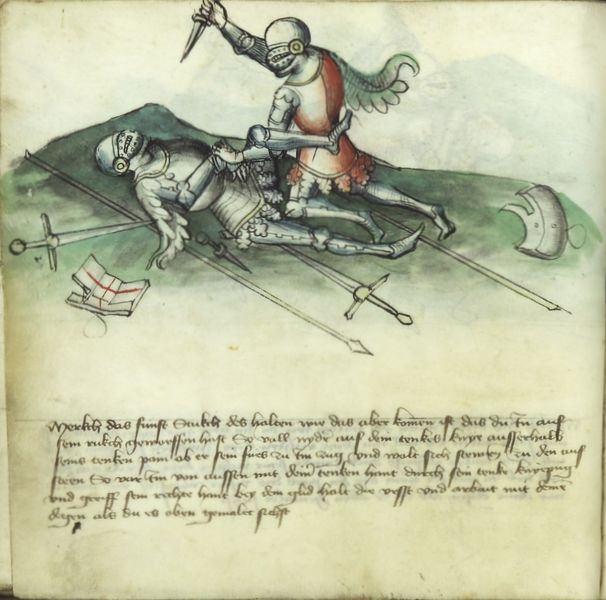 Merkch das funft Stukch des halten wie das aber komen ist das du in auf
sein rukch geworffen hast So vall nyder auf dein tenkes knye ausserhalb
seins tenken pain ob er sein fues zu im zug und wolt sich zu den auf
steen So var im von aussen mit deim tenken hant durch sein tenke
und greiff sein rechte hant bey dem glid halt die vesst und arbait mit deme
degen als du es oben gemalet sichst